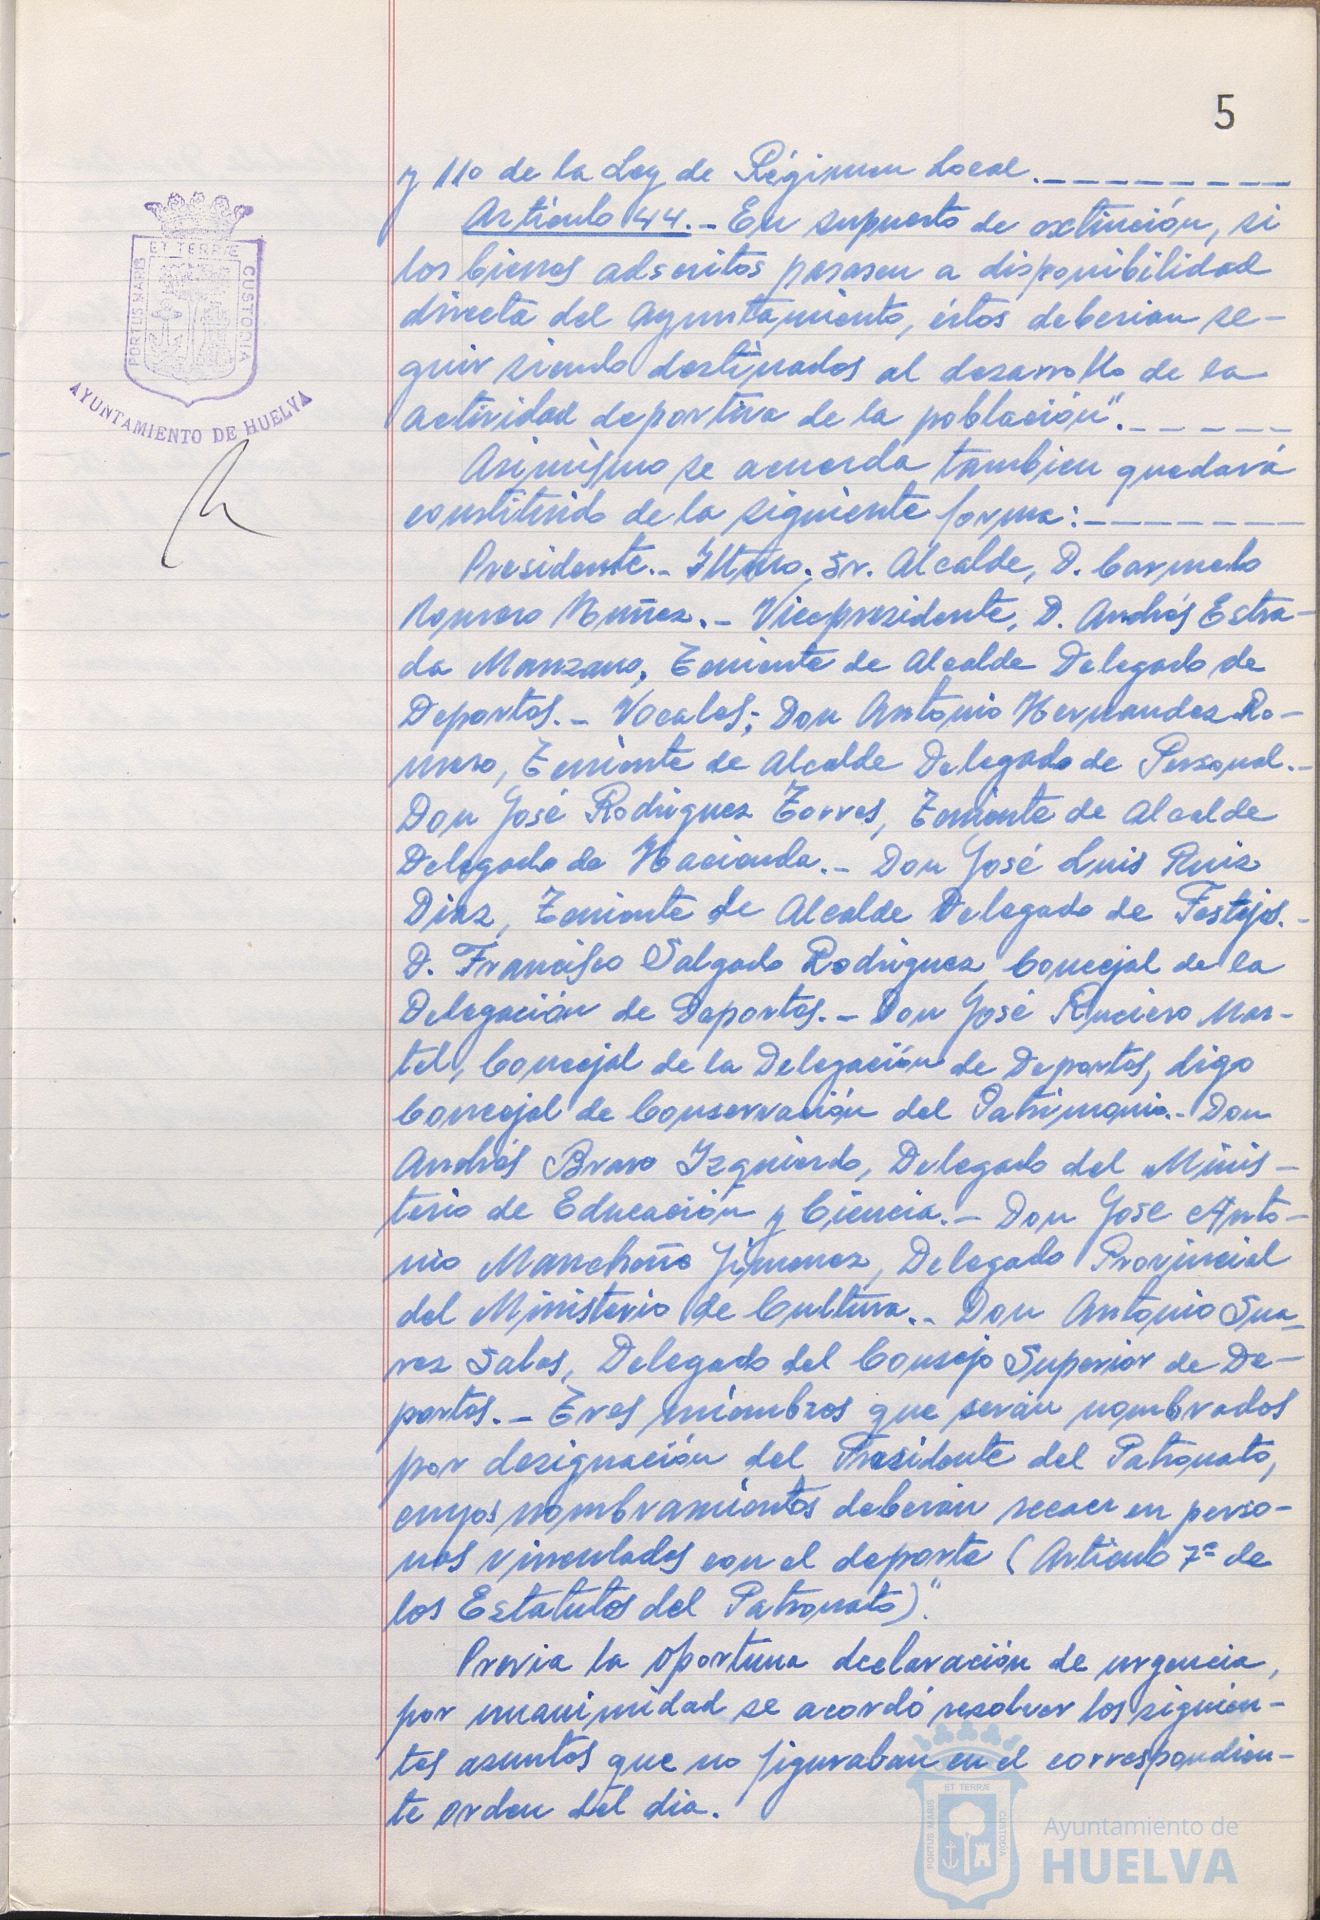 5
y 110 de la Ley de Régimen Local.
Artículo 44.- En supuesto de extinción, si
los bienes adscritos pasasen a disponibilidad
directa del Ayuntamiento, éstos deberian se-
guir siendo destinados al desarrollo de la
actividad deportiva de la población".
Asimismo se acuerda tambien quedará
constituido de la siguiente forma:
Presidente.- Iltmo. Sr. Alcalde, D. Carmelo
Romero Nuñez.- Vicepresidente, D. Andrés Estra-
da Manzano, Teniente de Alcalde Delegado de
Deportes.- Vocales; Don Antonio Hernandez Ro-
mero, Teniente de Alcalde Delegado de Personal.-
Don José Rodriguez Torres, Teniente de Alcalde
Delegado de Hacienda.- Don José Luis Ruiz
Diaz, Teniente de Alcalde Delegado de Festejos.-
D. Francisco Salgado Rodriguez, Concejal de la
Delegación de Deportes.- Don José Ruciero Mar-
tel, Concejal de la Delegación de Deportes, digo
Concejal de Conservación del Patrimonio.- Don
Andrés Bravo Izquierdo, Delegado del Minis-
terio de Educación y Ciencia.- Don Jose Anto-
nio Mancheño Jimenez, Delegado Provincial
del Ministerio de Cultura.- Don Antonio Sua-
rez Salas, Delegado del Consejo Superior de De-
portes.- Tres miembros que serán nombrados
por designación del Presidente del Patronato,
cuyos nombramientos deberán recaer en perso-
nas vinculadas con el deporte (Artículo 7º de
los Estatutos del Patronato)."
Previa la oportuna declaración de urgencia,
por unanimidad se acordó resolver los siguien-
tes asuntos que no figuraban en el correspondien-
te orden del dia.
PORTUS MARIS
ET TERRÆ
CUSTODIA
AYUNTAMIENTO DE HUELVA
PORTUS MARIS
ET TERRÆ
CUSTODIA
Ayuntamiento de
HUELVA